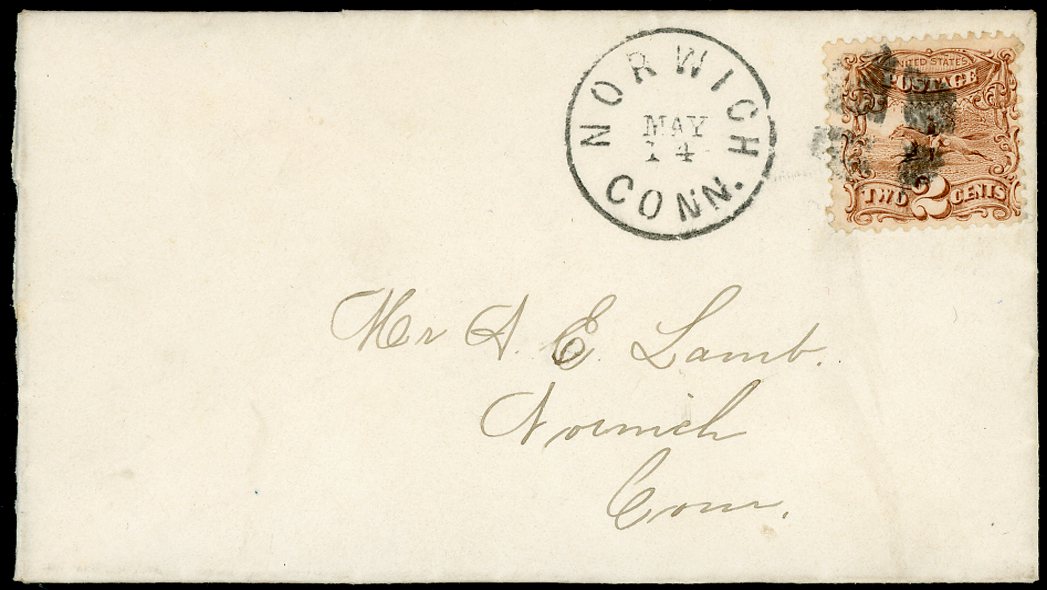 NORWICH
MAY
14
CONN.
UNITED STATES
POSTAGE
TWO 2 CENTS
Mr A. E. Lamb.
Norwich
Conn.